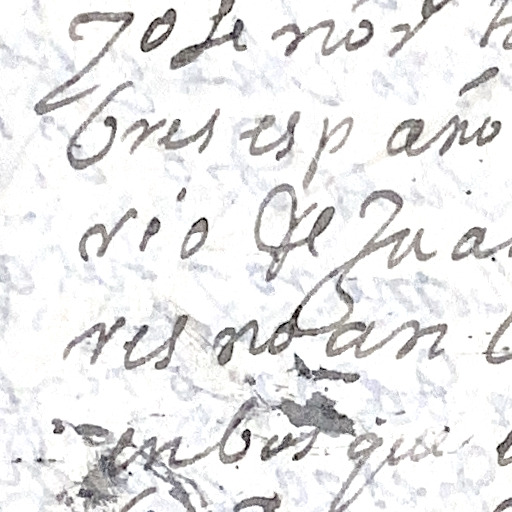 yo señor
bres españo
rio de Jua
res no an
en bus que